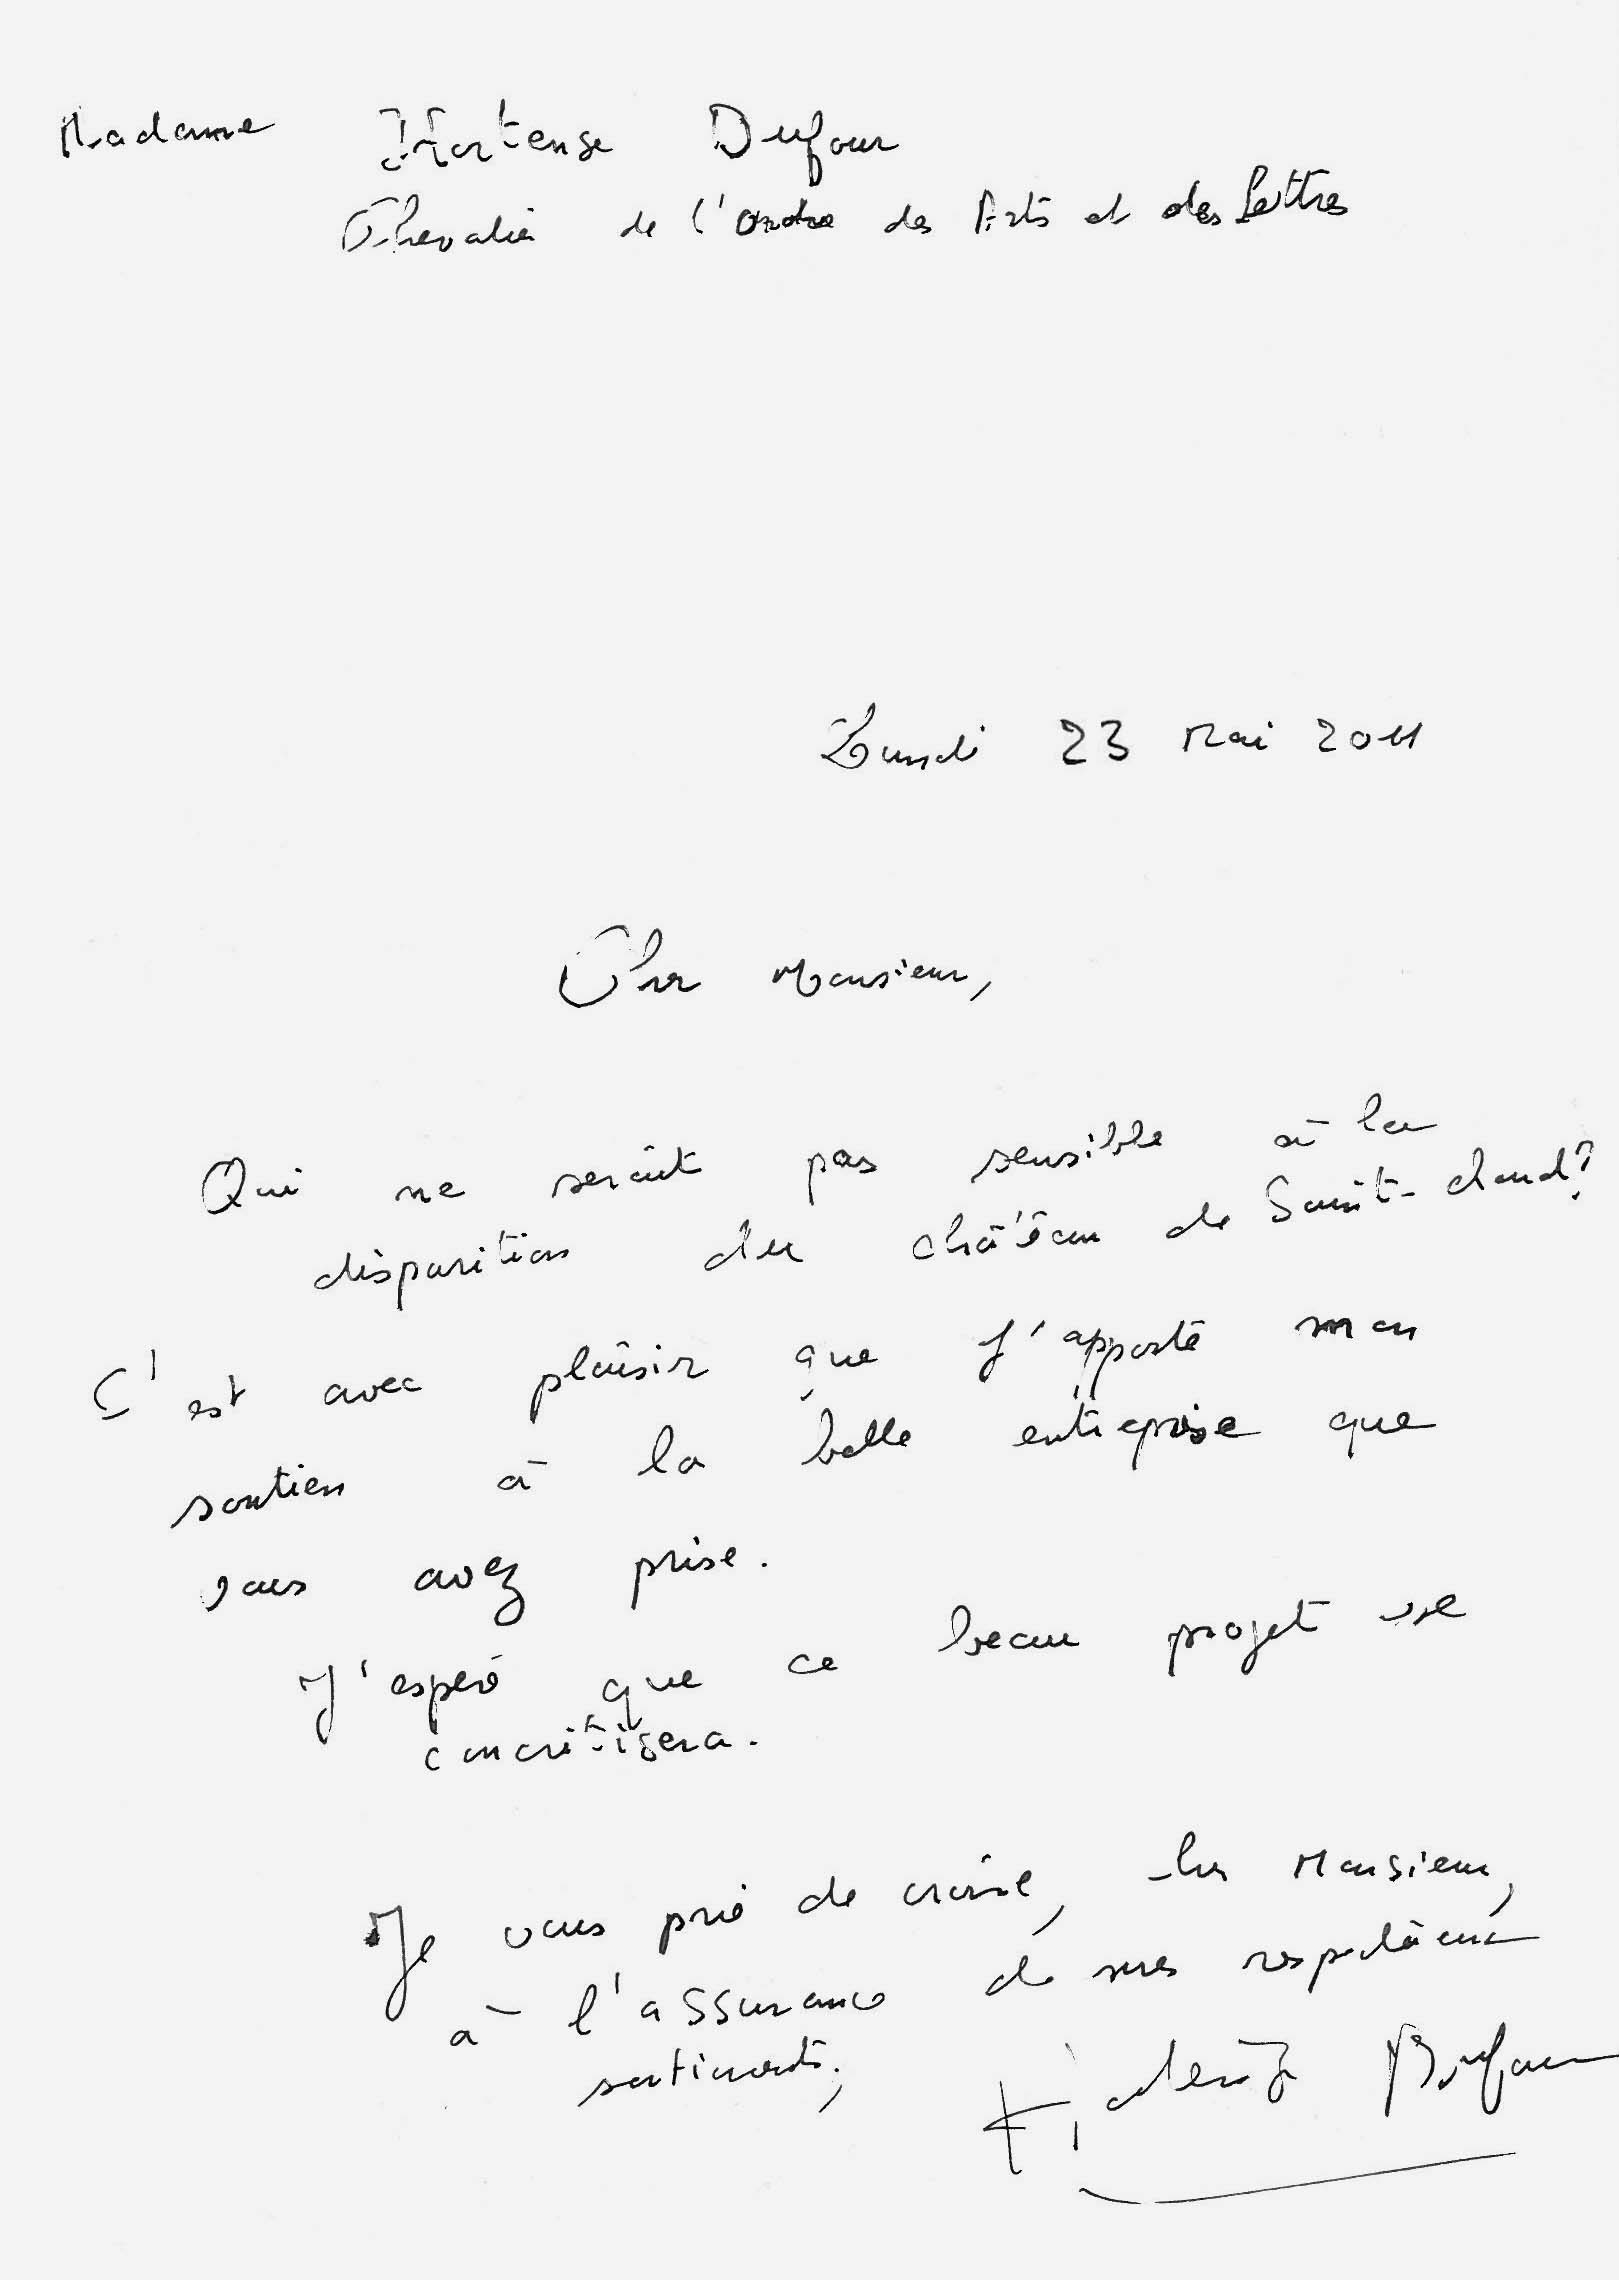 Madame Hortense Dufour
Chevalier de l'Ordre des Arts et des Lettres
Lundi 23 Mai 2011
Cher Monsieur,
Qui ne serait pas sensible à la
disparition du château de Saint-Cloud?
C'est avec plaisir que j'apporte mon
soutien à la belle entreprise que
vous avez prise.
J'espère que ce beau projet se
concrétisera.
Je vous prie de croire, cher Monsieur,
à l'assurance de mes respectueux
sentiments,
Hortense Dufour